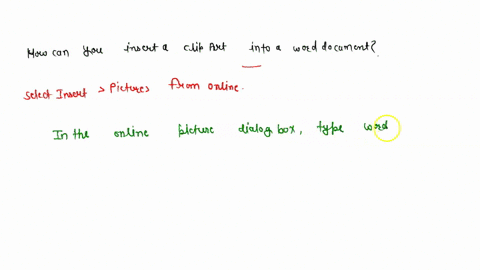 How can you insert a clip Art into a word document?
Select Insert > Pictures from online.
In the online picture dialog box, type word